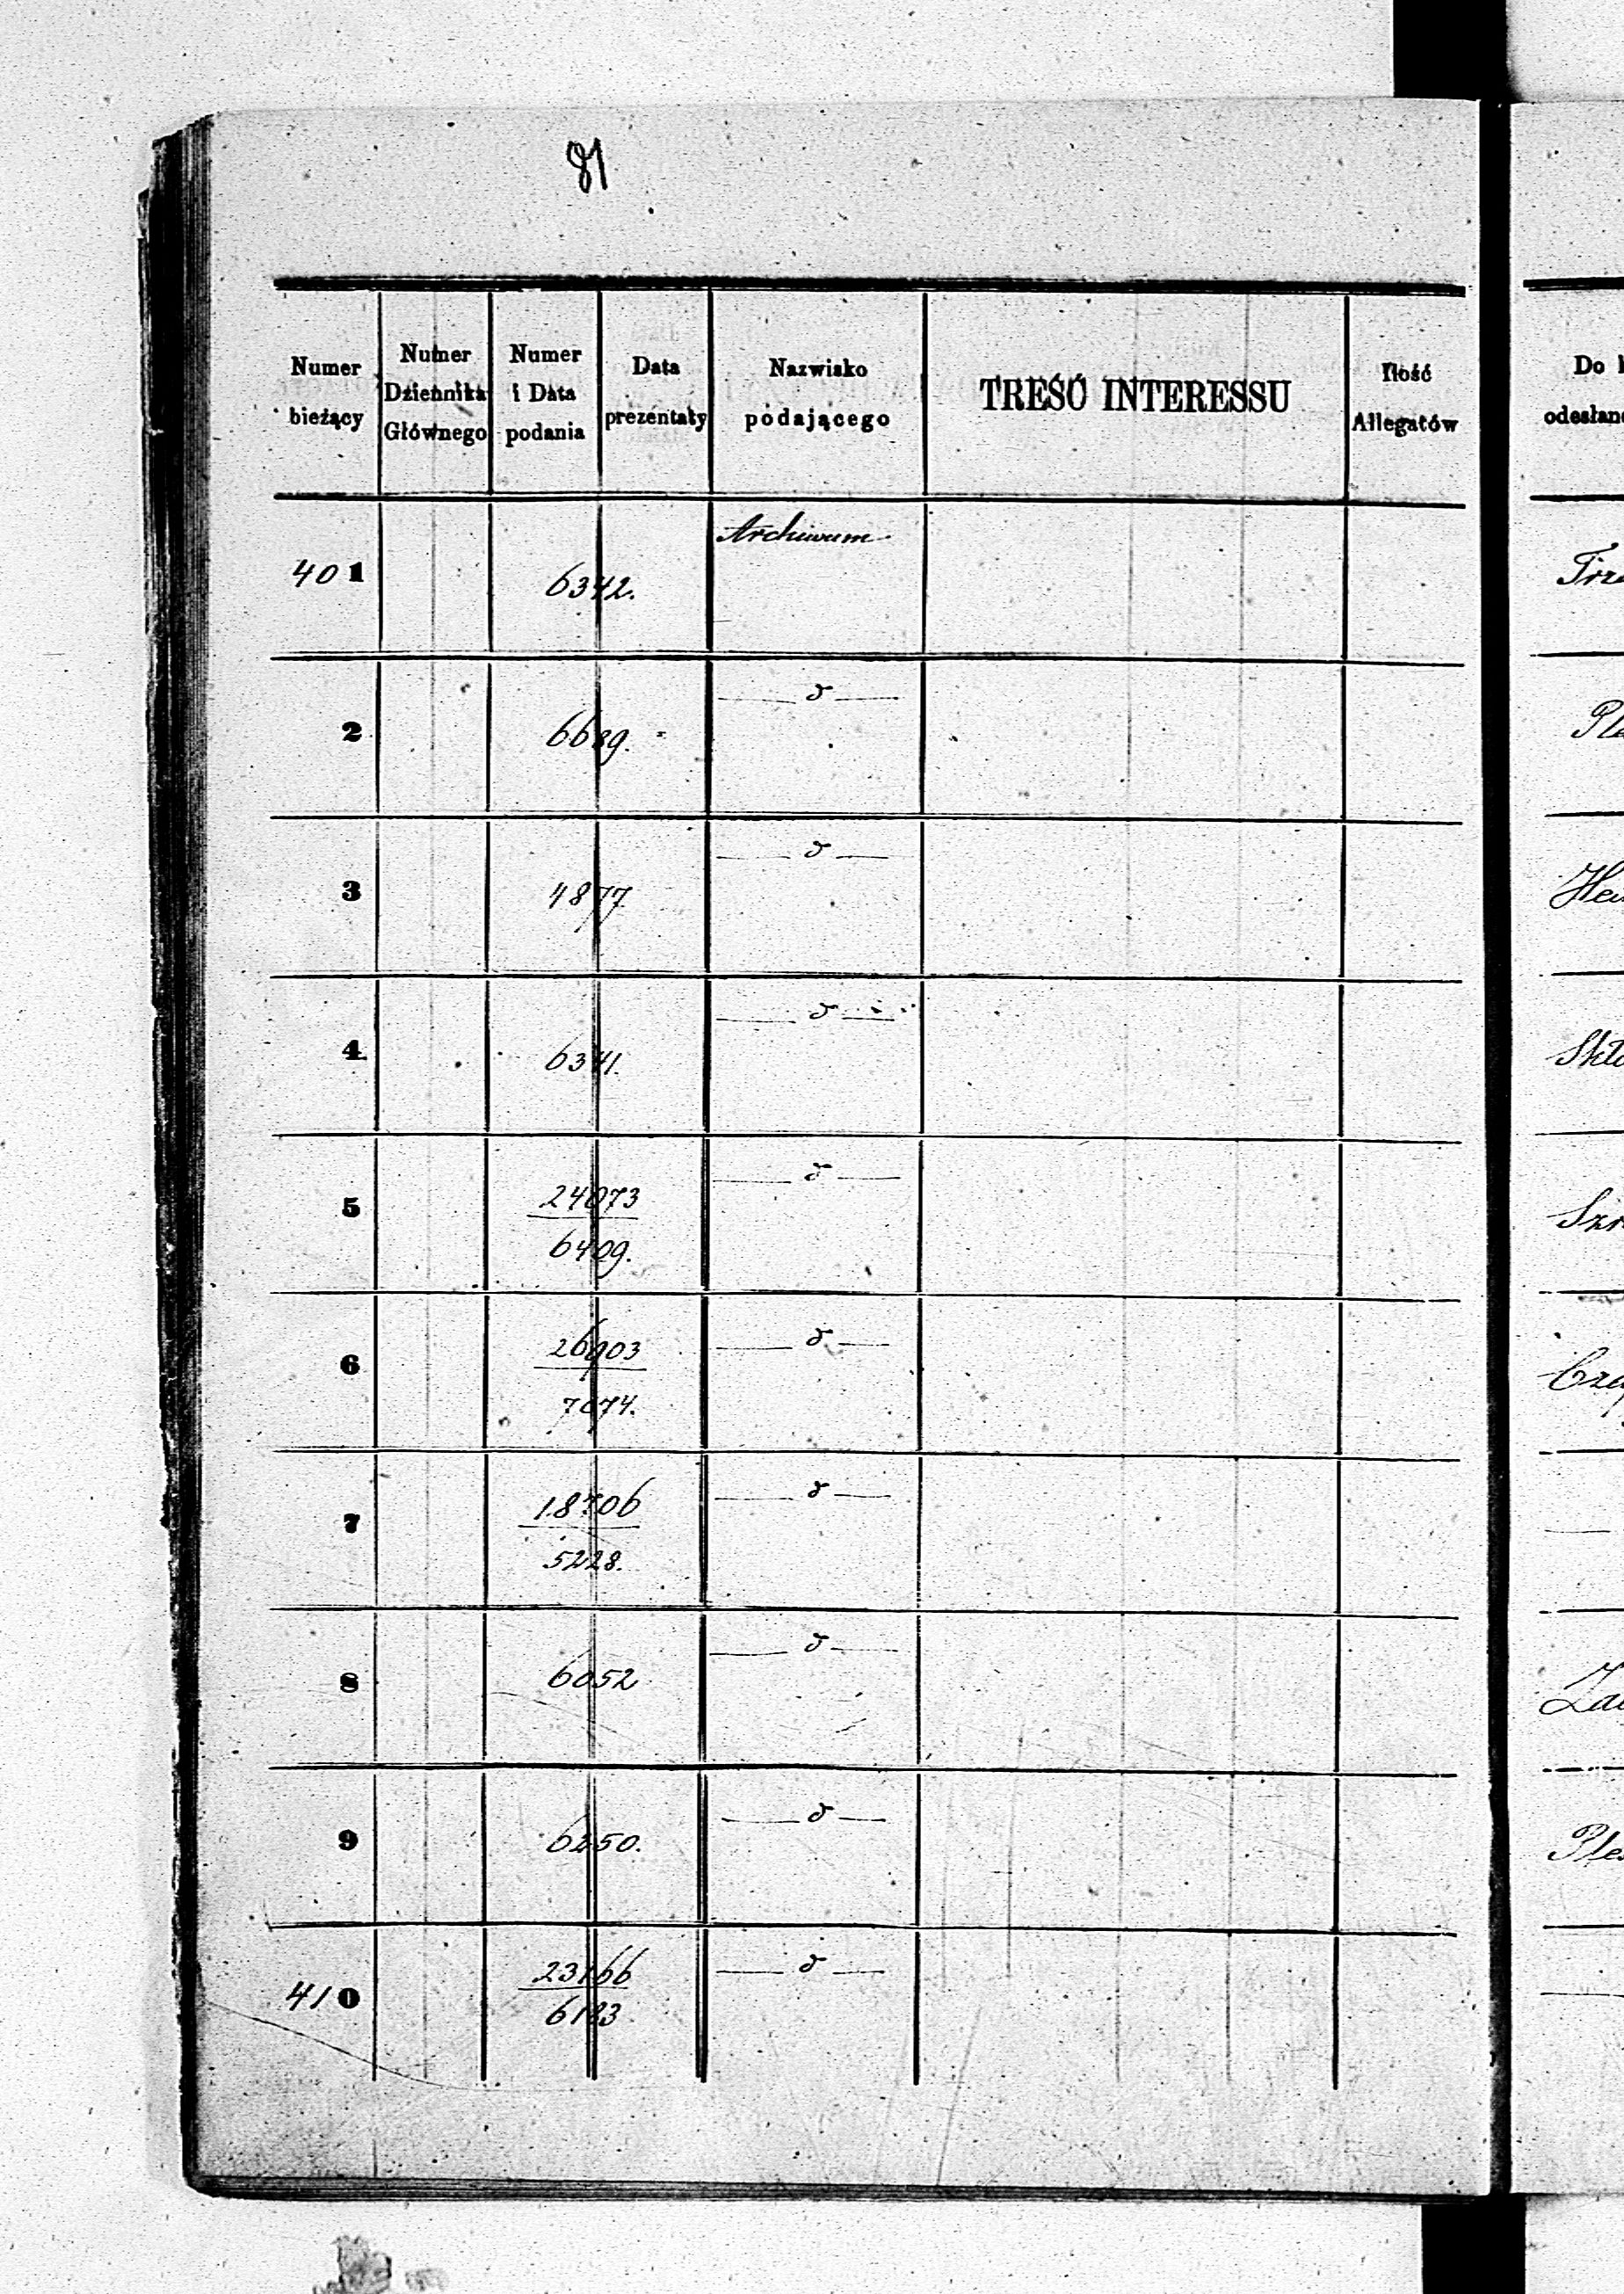 81
Numer bieżący
Numer Dziennika Głównego
Numer i Data podania
Data prezentaty
Nazwisko podającego
TREŚĆ INTERESSU
Ilość Allegatów
Do
odesłan
401 6342. Archiwum
2 6689. — d —
3 4877 — d —
4. 6341. — d —
5 24073 — d —
6409.
6 26903 — d —
7074.
7 18706 — d —
5228.
8 6052 — d —
9 6250. — d —
410 23166 — d —
6183